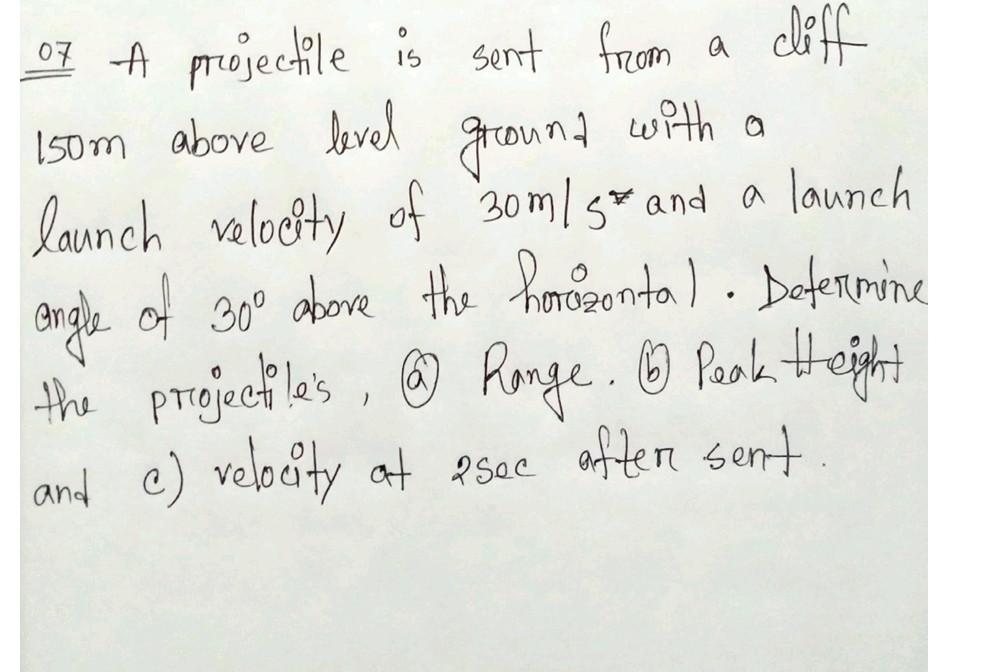 07 A projectile is sent from a cliff
150m above level ground with a
launch velocity of 30m/s and a launch
angle of 30° above the horizontal. Determine
the projectile's, (a) Range. (b) Peak Height
and c) velocity at 2sec after sent.